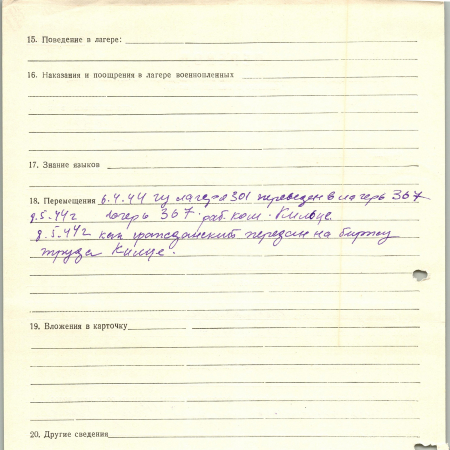 15. Поведение в лагере:
16. Наказания и поощрения в лагере военнопленных
17. Знание языков
18. Перемещения 6.4.44 из лагера 301 переведен в лагерь 367
8.5.44г лагерь 367 раб. ком. Кильце
8.5.44г как гражданский передан на биржу
труда Килце.
19. Вложения в карточку
20. Другие сведения